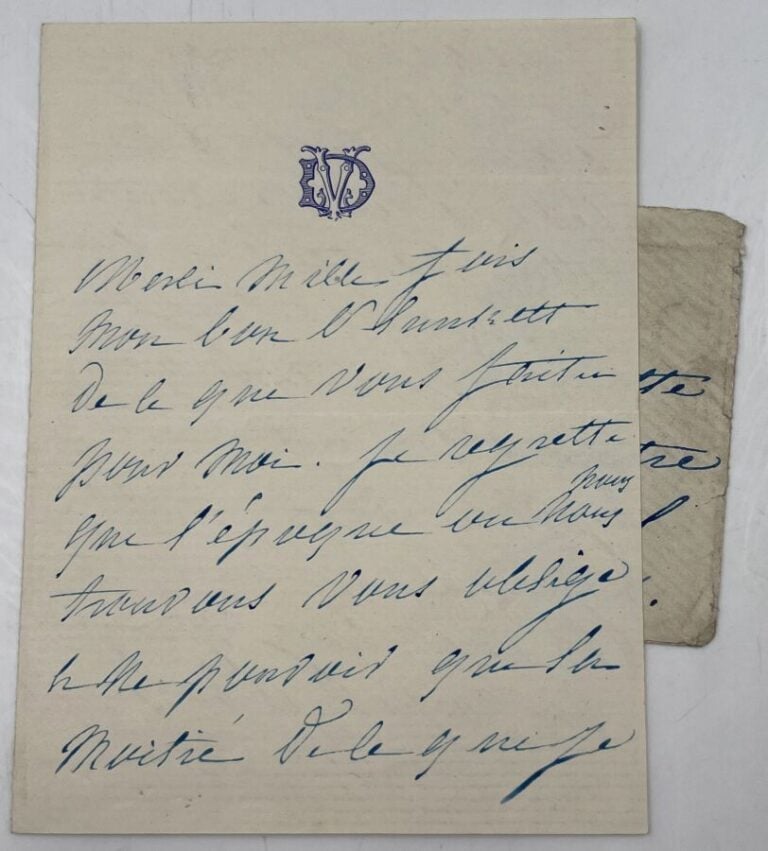 VD
Merci mille fois
mon bon Plunkett
de ce que vous faites
pour moi. Je regrette
que l'époque où nous nous
trouvons vous oblige
à ne pouvoir que la
moitié de ce que je
tte
tre